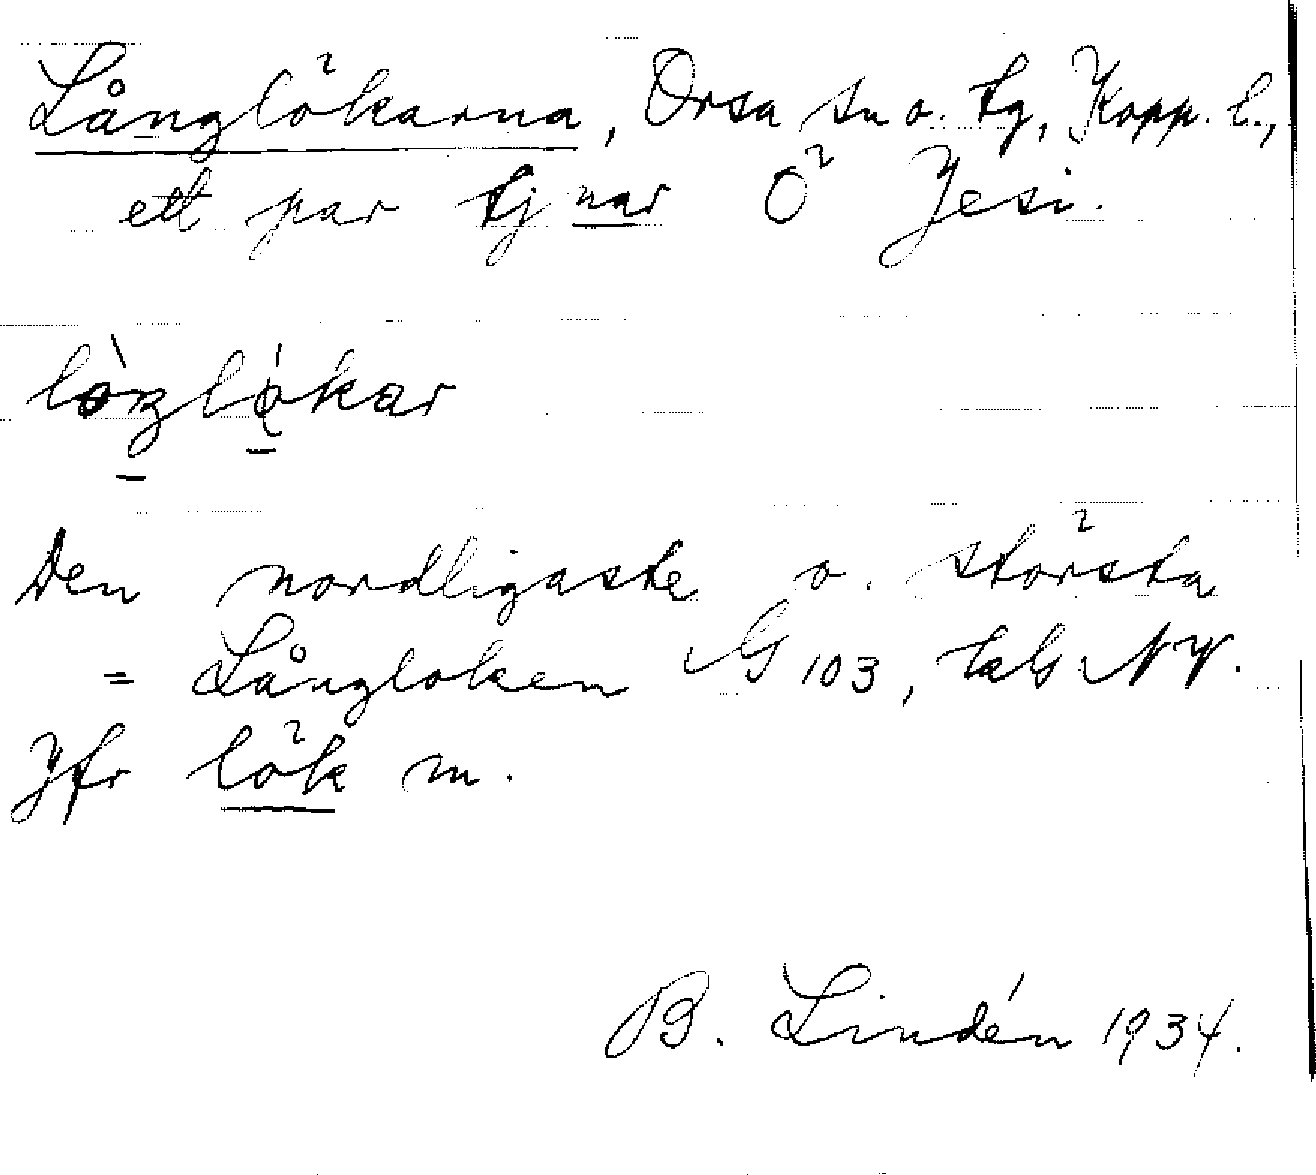 Långlökarna, Orsa sn o. tg, Kopp. l.,
ett par tjnar Ö Jesi.
lòŋlókar
Den nordligaste o. största
= Långloken G 103, NV.
Jfr lök m.
B. Lindén 1934.